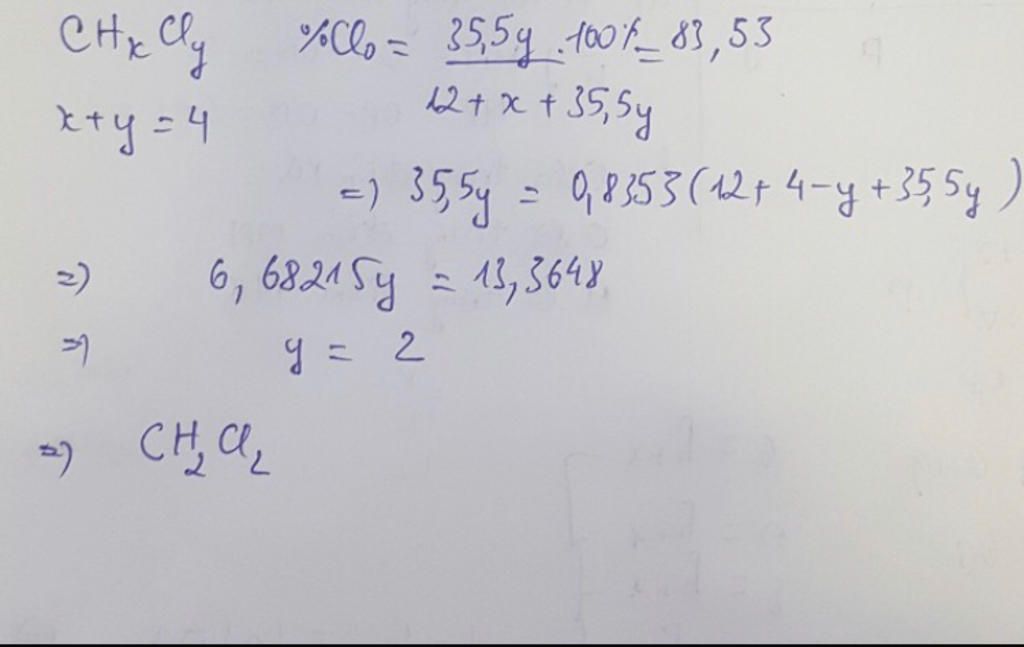 CHxCly %Cl = 35,5y .100% = 83,53
12 + x + 35,5y
x + y = 4
=) 35,5y = 0,8353(12 + 4 - y + 35,5y)
=) 6,68215y = 13,3648
=) y = 2
=) CH2Cl2